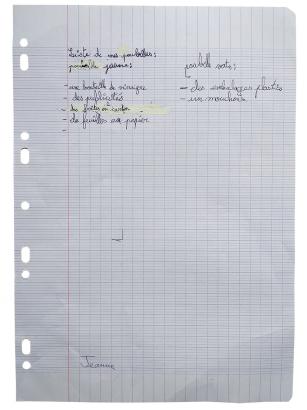 Liste de mes poubelles:
poubelle jaune:
- une bouteille de vinaigre
- des publicités
- des boites en carton
- de feuilles en papier
-
poubelle verte:
- des emballages plastic
- un mouchoir
Jeanne